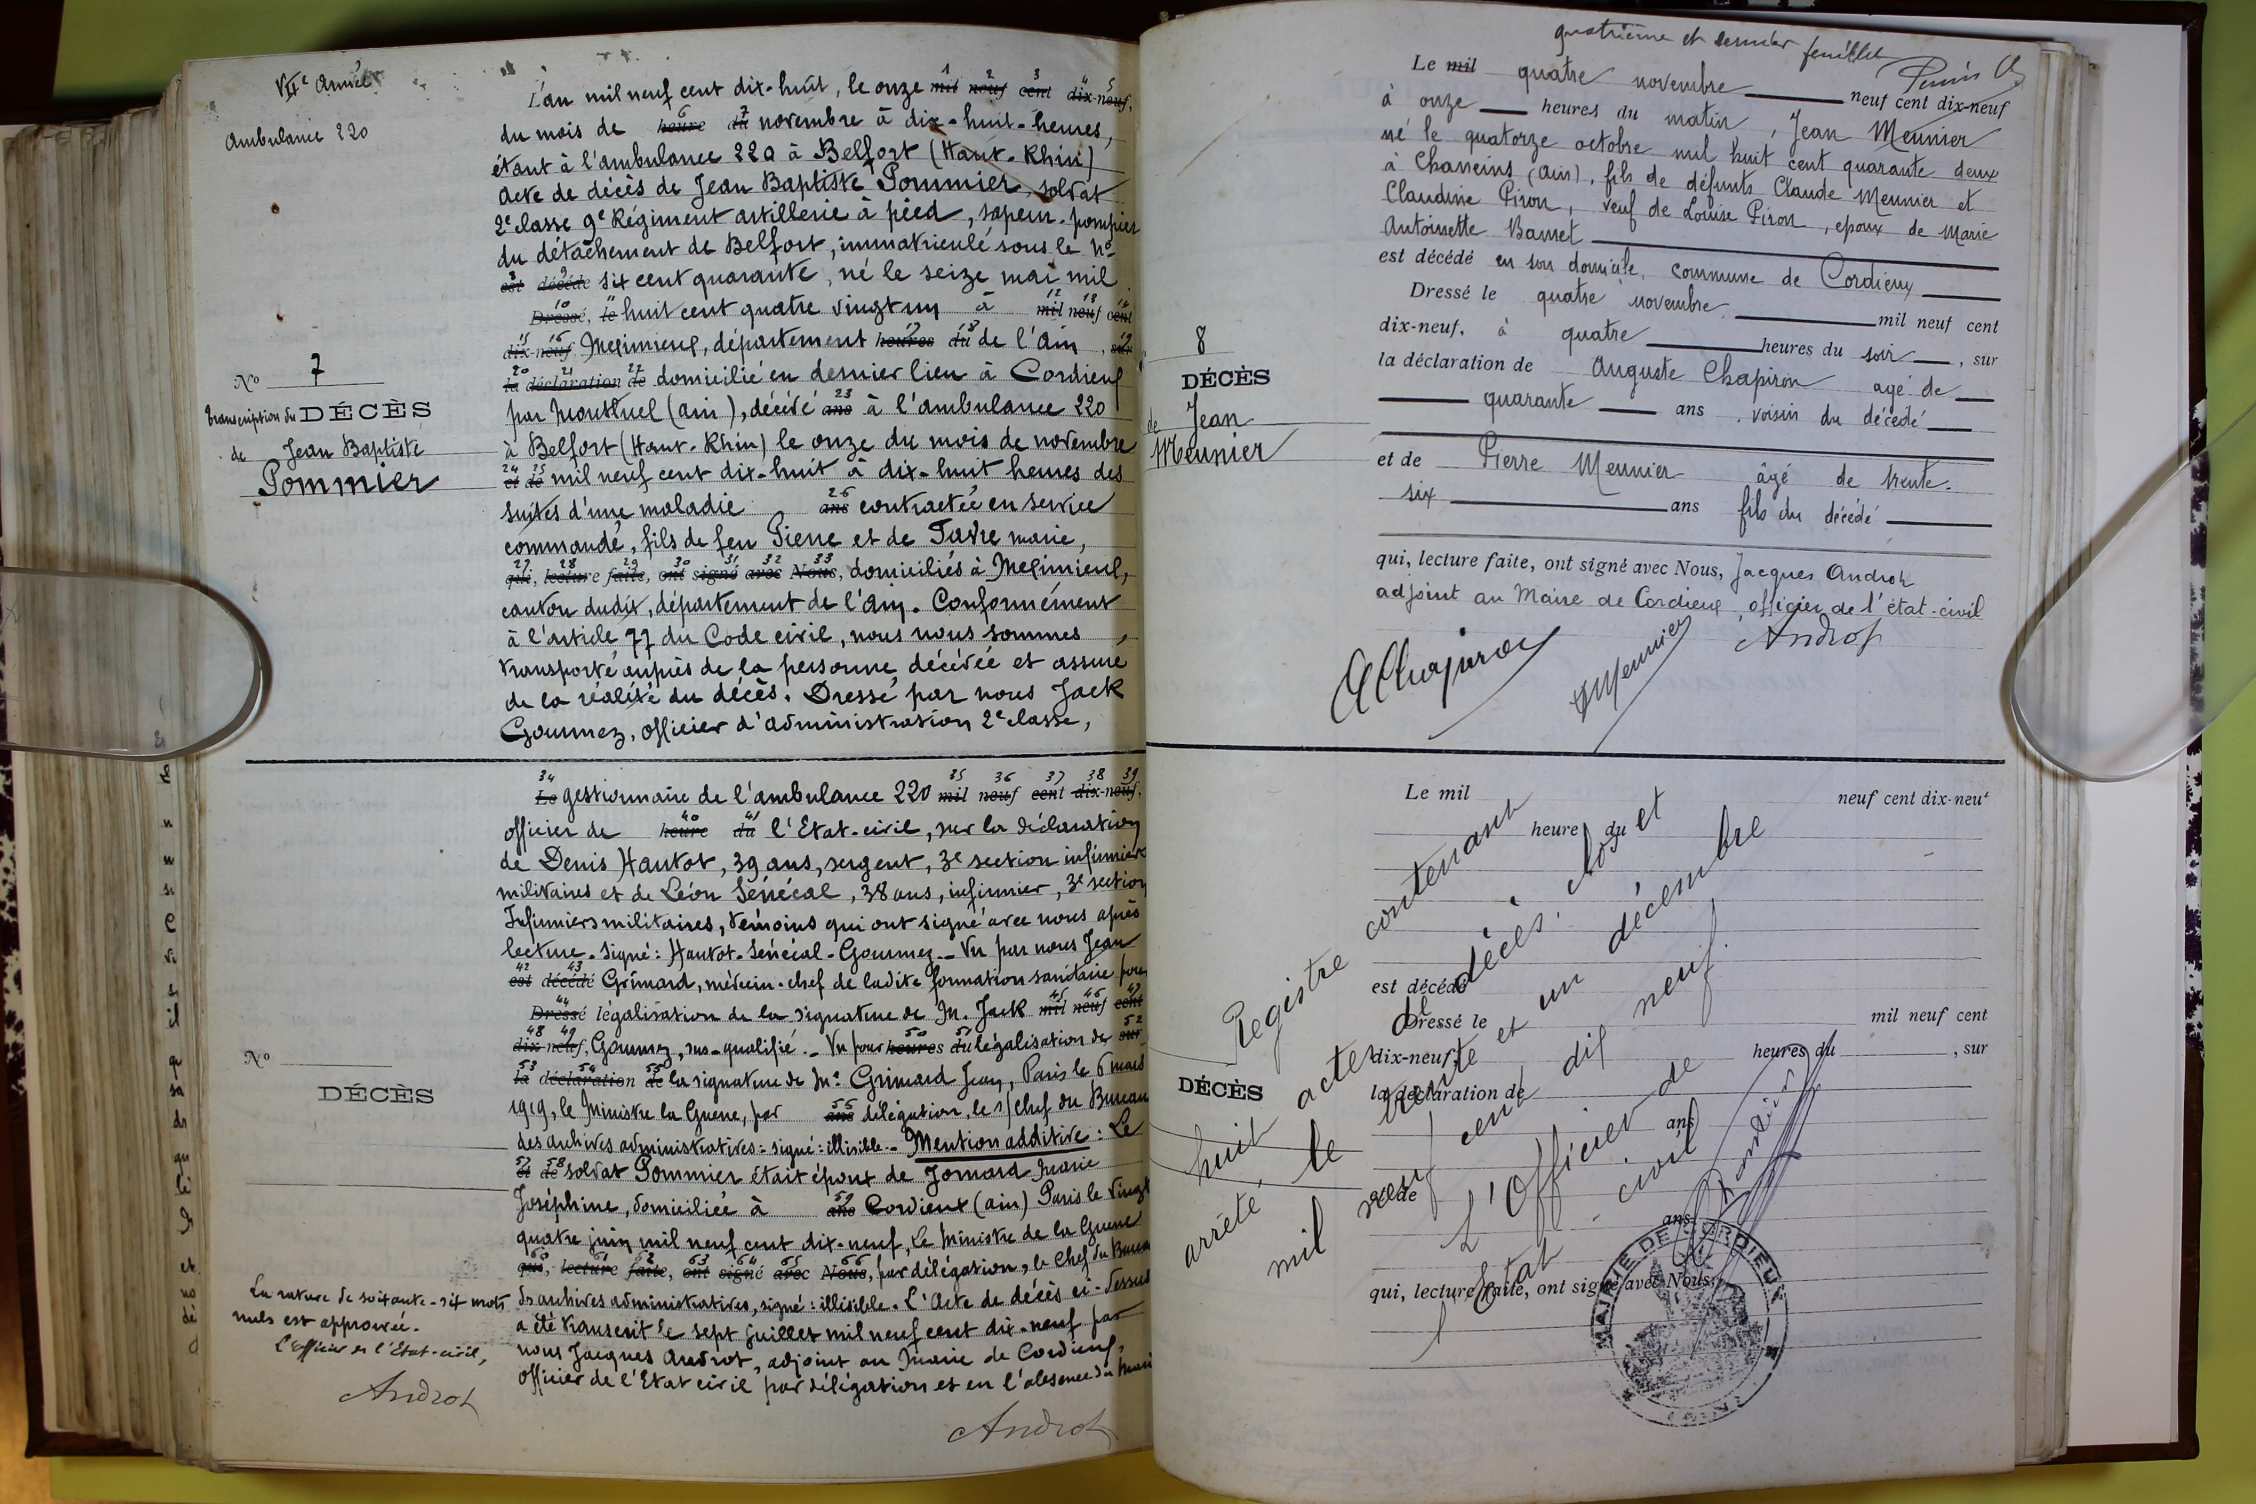 VIIe Année
Ambulance 220
N° 7
transcription du DÉCÈS
de Jean Baptiste
Pommier
L'an mil neuf cent dix-huit, le onze mil neuf cent dix-neuf,
du mois de heure du novembre à dix-huit-heures,
étant à l'ambulance 220 à Belfort (Haut-Rhin)
Acte de décès de Jean Baptiste Pommier, soldat
2e classe 9e Régiment artillerie à pied, sapeur-pompier
du détachement de Belfort, immatriculé sous le No
est décédé six cent quarante, né le seize mai mil
Dressé, le huit cent quatre vingt un à mil neuf cent
dix-neuf, Meximieux, département heures du de l'Ain, sur
la déclaration de domicilié en dernier lieu à Cordieux
par Montluel (Ain), décédé ans à l'ambulance 220
à Belfort (Haut-Rhin) le onze du mois de novembre
et de mil neuf cent dix-huit à dix-huit heures des
suites d'une maladie ans contractée en service
commandé, fils de feu Pierre et de Favre marie,
qui, lecture faite, ont signé avec Nous, domiciliés à Meximieux,
canton dudit, département de l'Ain. Conformément
à l'article 77 du Code civil, nous nous sommes
transporté auprès de la personne décédée et assuré
de la réalité du décès. Dressé par nous Jack
Goumez, officier d'administration 2e classe,
N°
DÉCÈS
Le gestionnaire de l'ambulance 220 mil neuf cent dix-neuf,
officier de heure du l'Etat-civil, sur la déclaration
de Denis Hautot, 39 ans, sergent, 3e section infirmiers
militaires et de Léon Sénécal, 38 ans, infirmier, 3e section
Infirmiers militaires, témoins qui ont signé avec nous après
lecture. Signé: Hautot-Sénécal-Goumez_ Vu par nous Jean
est décédé Grimard, médecin-chef de ladite formation sanitaire pour
Dressé légalisation de la signature de M. Jack mil neuf cent
dix neuf, Goumez, sus-qualifié._ Vu pour heures du légalisation de sur
la déclaration de la signature de Mr Grimard Jean, Paris le 6 mars
1919, le Ministre la Guerre, par ans délégation, le s/chef du Bureau
des archives administratives: signé: illisible._ Mention additive: Le
et de soldat Pommier était époux de Jomard Marie
Joséphine, domiciliée à ans Cordieux (Ain) Paris le vingt
quatre juin mil neuf cent dix-neuf, Le Ministre de la Guerre
qui, lecture faite, ont signé avec Nous, par délégation, le Chef du Bureau
des archives administratives, signé: illisible. L'Acte de décès ci-dessus
a été transcrit le sept juillet mil neuf cent dix-neuf par
nous Jacques Androt, adjoint au Mairie de Cordieux,
officier de l'Etat civil par délégation et en l'absence du Maire
Androt
La rature de soixante-six mots
nuls est approuvée.
L'officier de l'Etat-civil,
Androt
quatrième et dernier feuillet
8
DÉCÈS
de Jean
Meunier
Le mil quatre novembre neuf cent dix-neuf
à onze heures du matin, Jean Meunier
né le quatorze octobre mil huit cent quarante deux
à Chaneins (Ain), fils de défunts Claude Meunier et
Claudine Piron, veuf de Louise Piron, époux de Marie
Antoinette Banset
est décédé en son domicile, commune de Cordieux
Dressé le quatre novembre mil neuf cent
dix-neuf, à quatre heures du soir, sur
la déclaration de Auguste Chapiron agé de
quarante ans, voisin du décédé
et de Pierre Meunier âgé de trente-
six ans fils du décédé
qui, lecture faite, ont signé avec Nous, Jacques Androt
adjoint au Maire de Cordieux, officier de l'état-civil
AChapiron
PMeunier
Androt
DÉCÈS
Le mil neuf cent dix-neuf
heure du
est décédé
Dressé le mil neuf cent
dix-neuf, heures du, sur
la déclaration de
ans
et de
ans
qui, lecture faite, ont signé avec Nous,
Registre contenant
huit actes de décès. clos et
arrêté, le trente et un décembre
mil neuf cent dix neuf.
L'Officier de
l'Etat civil
MAIRIE DE CORDIEUX
(AIN)